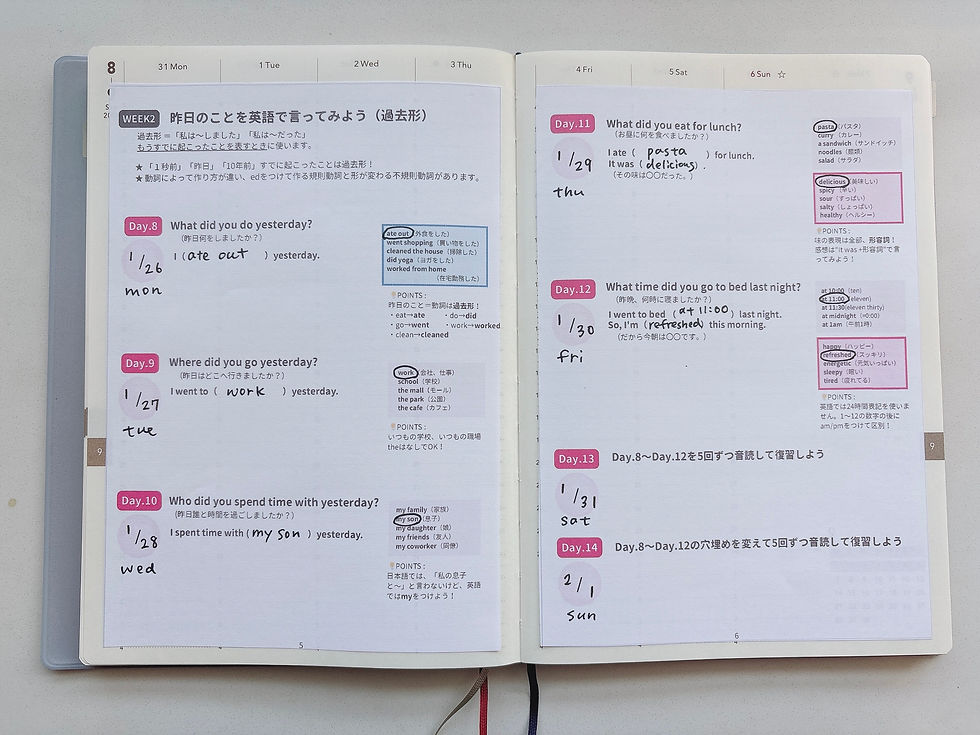 8
31 Mon
1 Tue
2 Wed
3 Thu
WEEK2 昨日のことを英語で言ってみよう（過去形）
過去形＝「私は〜しました」「私は〜だった」
もうすでに起こったことを表すときに使います。
★「1秒前」「昨日」「10年前」すでに起こったことは過去形！
★動詞によって作り方が違い、edをつけて作る規則動詞と形が変わる不規則動詞があります。
Day.8 What did you do yesterday?
（昨日何をしましたか？）
1/26
mon
I (ate out ) yesterday.
ate out（外食をした）
went shopping（買い物をした）
cleaned the house（掃除した）
did yoga（ヨガをした）
worked from home
（在宅勤務した）
POINTS：
昨日のこと＝動詞は過去形！
・eat→ate ・do→did
・go→went ・work→worked
・clean→cleaned
Day.9 Where did you go yesterday?
（昨日はどこへ行きましたか？）
1/27
tue
I went to ( work ) yesterday.
work（会社、仕事）
school（学校）
the mall（モール）
the park（公園）
the cafe（カフェ）
POINTS：
いつもの学校、いつもの職場
theはなしでOK！
9
Day.10 Who did you spend time with yesterday?
（昨日誰と時間を過ごしましたか？）
1/28
wed
I spent time with ( my son ) yesterday.
my family（家族）
my son（息子）
my daughter（娘）
my friends（友人）
my coworker（同僚）
POINTS：
日本語では、「私の息子
と〜」と言わないけど、英語
ではmyをつけよう！
5
4 Fri
5 Sat
6 Sun ☆
Day.11 What did you eat for lunch?
（お昼に何を食べましたか？）
1/29
thu
I ate ( pasta ) for lunch.
It was ( delicious ).
（その味は〇〇だった。）
pasta（パスタ）
curry（カレー）
a sandwich（サンドイッチ）
noodles（麺類）
salad（サラダ）
delicious（美味しい）
spicy（辛い）
sour（すっぱい）
salty（しょっぱい）
healthy（ヘルシー）
POINTS：
味の表現は全部、形容詞！
感想は"It was +形容詞"で言
ってみよう！
Day.12 What time did you go to bed last night?
（昨晩、何時に寝ましたか？）
1/30
fri
I went to bed ( at 11:00 ) last night.
So, I'm ( refreshed ) this morning.
（だから今朝は〇〇です。）
at 10:00（ten）
at 11:00（eleven）
at 11:30(eleven thirty)
at midnight（=0:00）
at 1am（午前1時）
happy（ハッピー）
refreshed（スッキリ）
energetic（元気いっぱい）
sleepy（眠い）
tired（疲れてる）
POINTS：
英語では24時間表記を使いま
せん。1〜12の数字の後に
am/pmをつけて区別！
9
Day.13 Day.8〜Day.12を5回ずつ音読して復習しよう
1/31
sat
Day.14 Day.8〜Day.12の穴埋めを変えて5回ずつ音読して復習しよう
2/1
sun
6